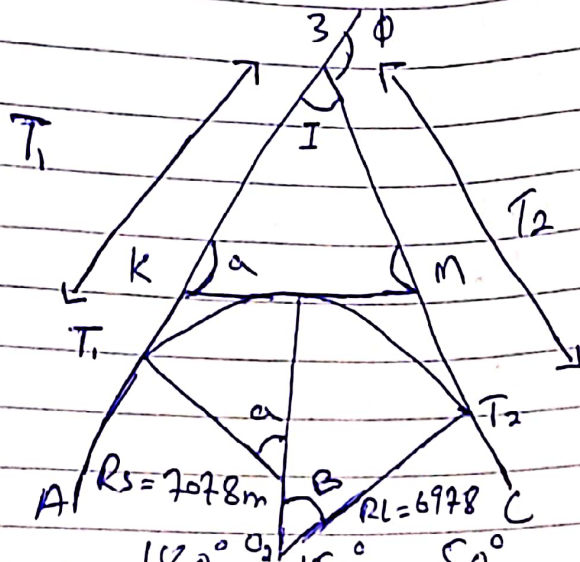 3 φ
I
T₁
T₂
K a
M
T₁
a
T₂
Rs = 7078m
B
RL = 6978
A
C
O₂